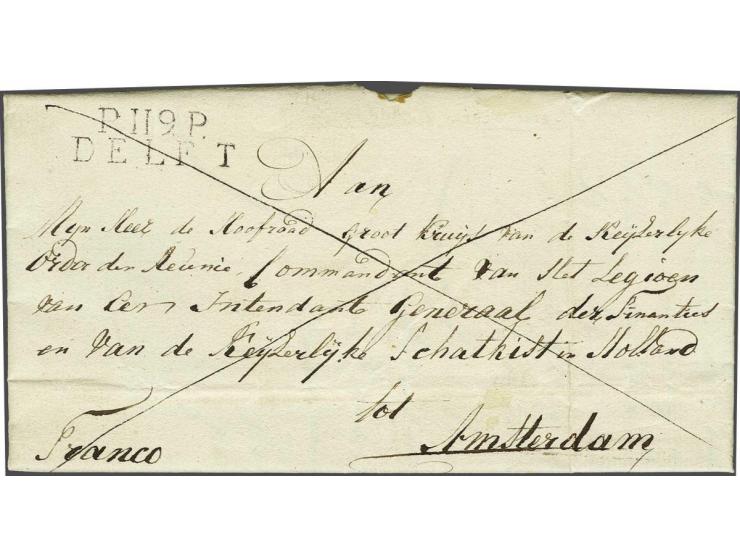 P.119.P.
DELFT
Aan
Mijn Heer de Hoofraad groot Kruijs van de Keijzerlyke
Order der Reunie, Commandant Van Het Legioen
van Eer Intendant Generaal der Finanties
en Van de Keijzerlijke Schatkist in Holland
tot
Franco Amsterdam